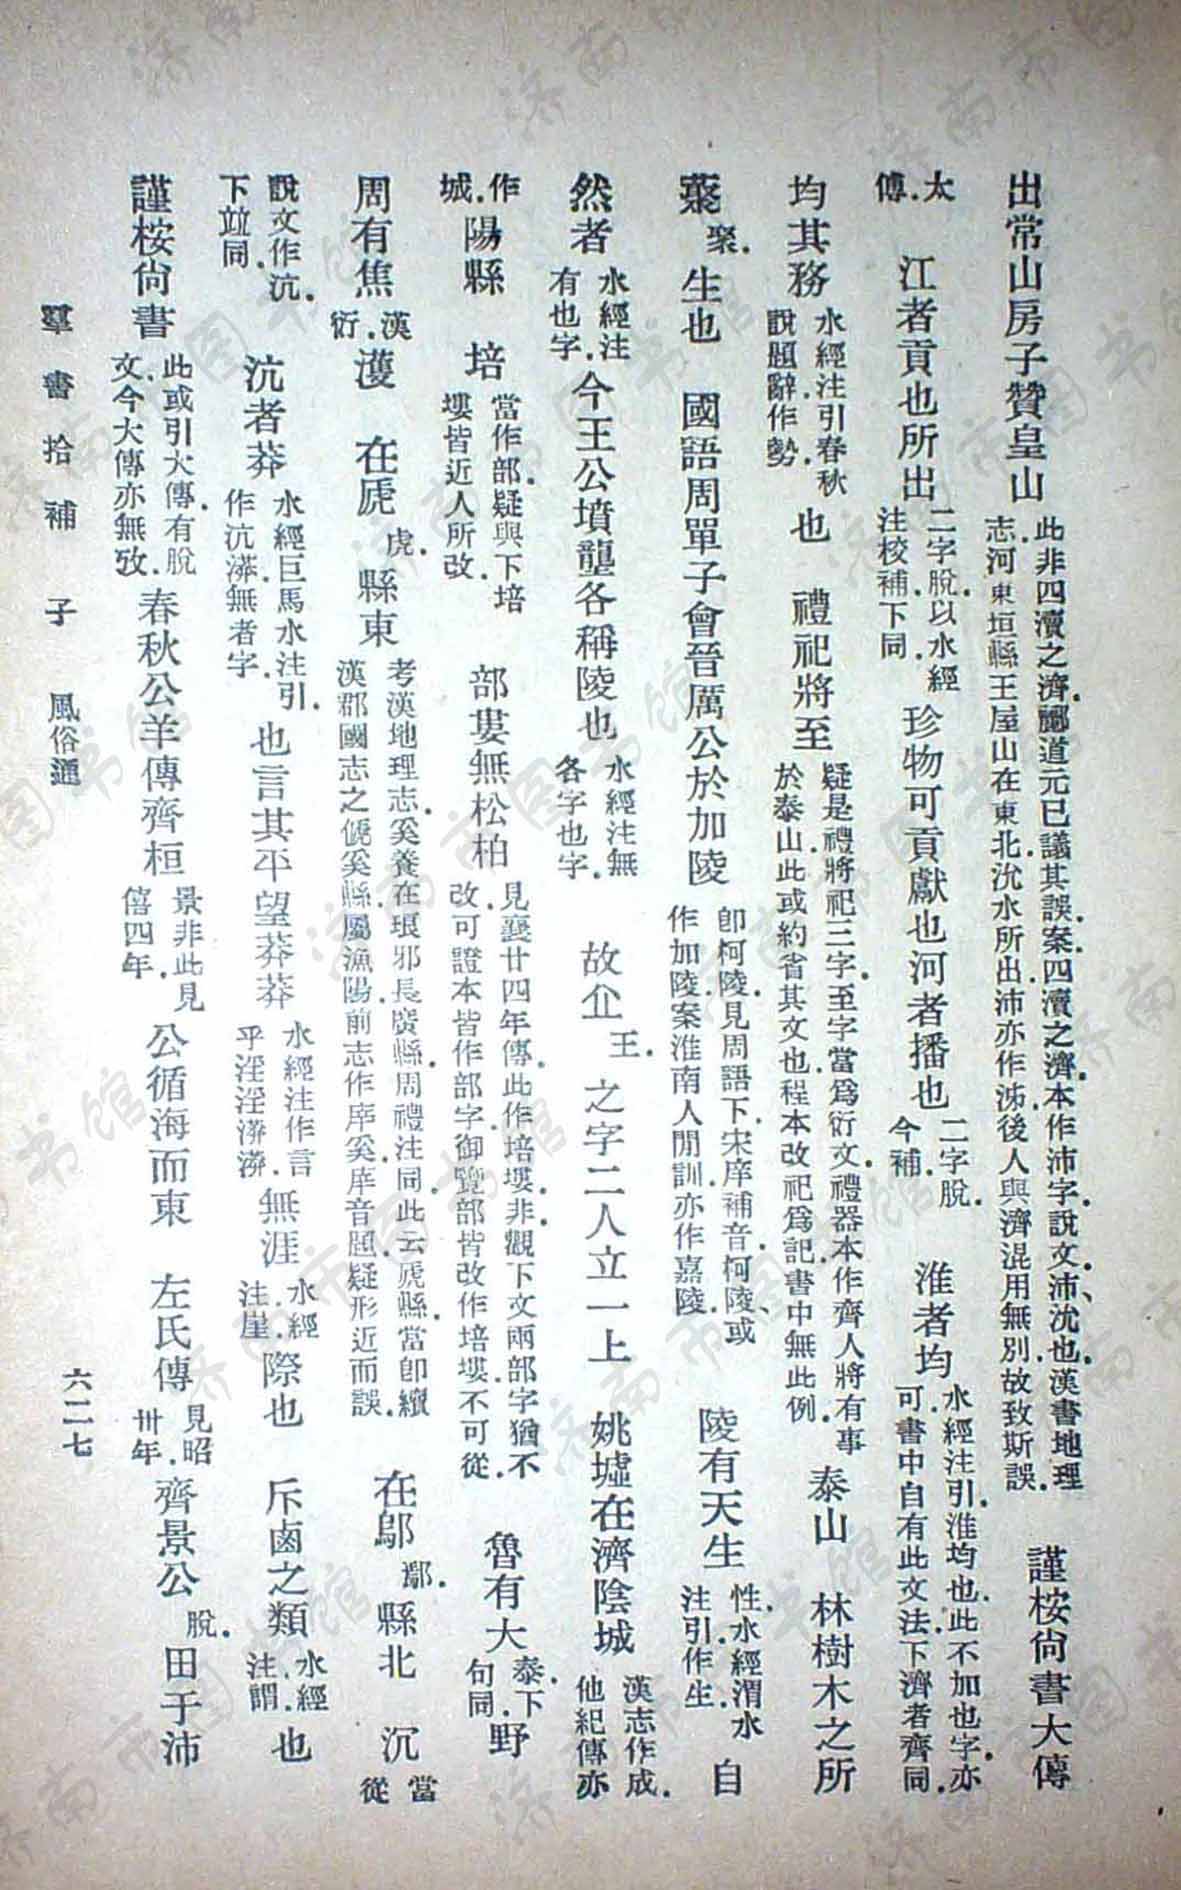 出常山房子贊皇山此非四瀆之濟.酈道元已議其誤.案四瀆之濟.本作沛字.說文.沛、沇也.漢書地理志.河東垣縣王屋山在東北.沇水所出.沛亦作泲.後人與濟混用無別.故致斯誤. 謹桉尙書大傳
太傅. 江者貢也所出二字脫.以水經注校補.下同.珍物可貢獻也河者播也二字脫.今補. 淮者均水經注引.淮均也.此不加也字.亦可.書中自有此文法.下濟者齊同.
均其務水經注引春秋說題辭作勢.也 禮祀將至疑是禮將祀三字.至字當爲衍文.禮器本作齊人將有事於泰山.此或約省其文也.程本改祀爲記.書中無此例.泰山 林樹木之所
藂聚.生也 國語周單子會晉厲公於加陵卽柯陵.見周語下.宋庠補音.柯陵、或作加陵.案淮南人閒訓.亦作嘉陵. 陵有天生性.水經渭水注引作生.自
然者水經注有也字.今王公墳壟各稱陵也水經注無各字也字. 故企王.之字二人立一上 姚墟在濟陰城漢志作成.他紀傳亦
作城.陽縣 培當作部.疑與下培塿皆近人所改. 部婁無松柏見襄廿四年傳.此作培塿.非.觀下文兩部字猶不改.可證本皆作部字.御覽部皆改作培塿.不可從. 魯有大泰.下句同.野
周有焦漢.衍.濩 在虒虎.縣東考漢地理志.奚養在琅邪長廣縣.周禮注同.此云虎縣.當卽續漢郡國志之傂奚縣.屬漁陽.前志作庠奚.庠音題.疑形近而誤. 在鄔鄢.縣北 沉當從
說文作沆.下竝同. 沆者莽水經巨馬水注引.作沆漭.無者字.也言其平望莽莽水經注作言乎淫淫漭漭.無涯水經注崖.際也 斥鹵之類水經注謂.也
謹桉尙書此或引大傳.有脫文.今大傳亦無攷.春秋公羊傳齊桓景非.此見僖四年.公循海而東 左氏傳見昭卅年.齊景公脫.田于沛
羣書拾補 子 風俗通 六二七